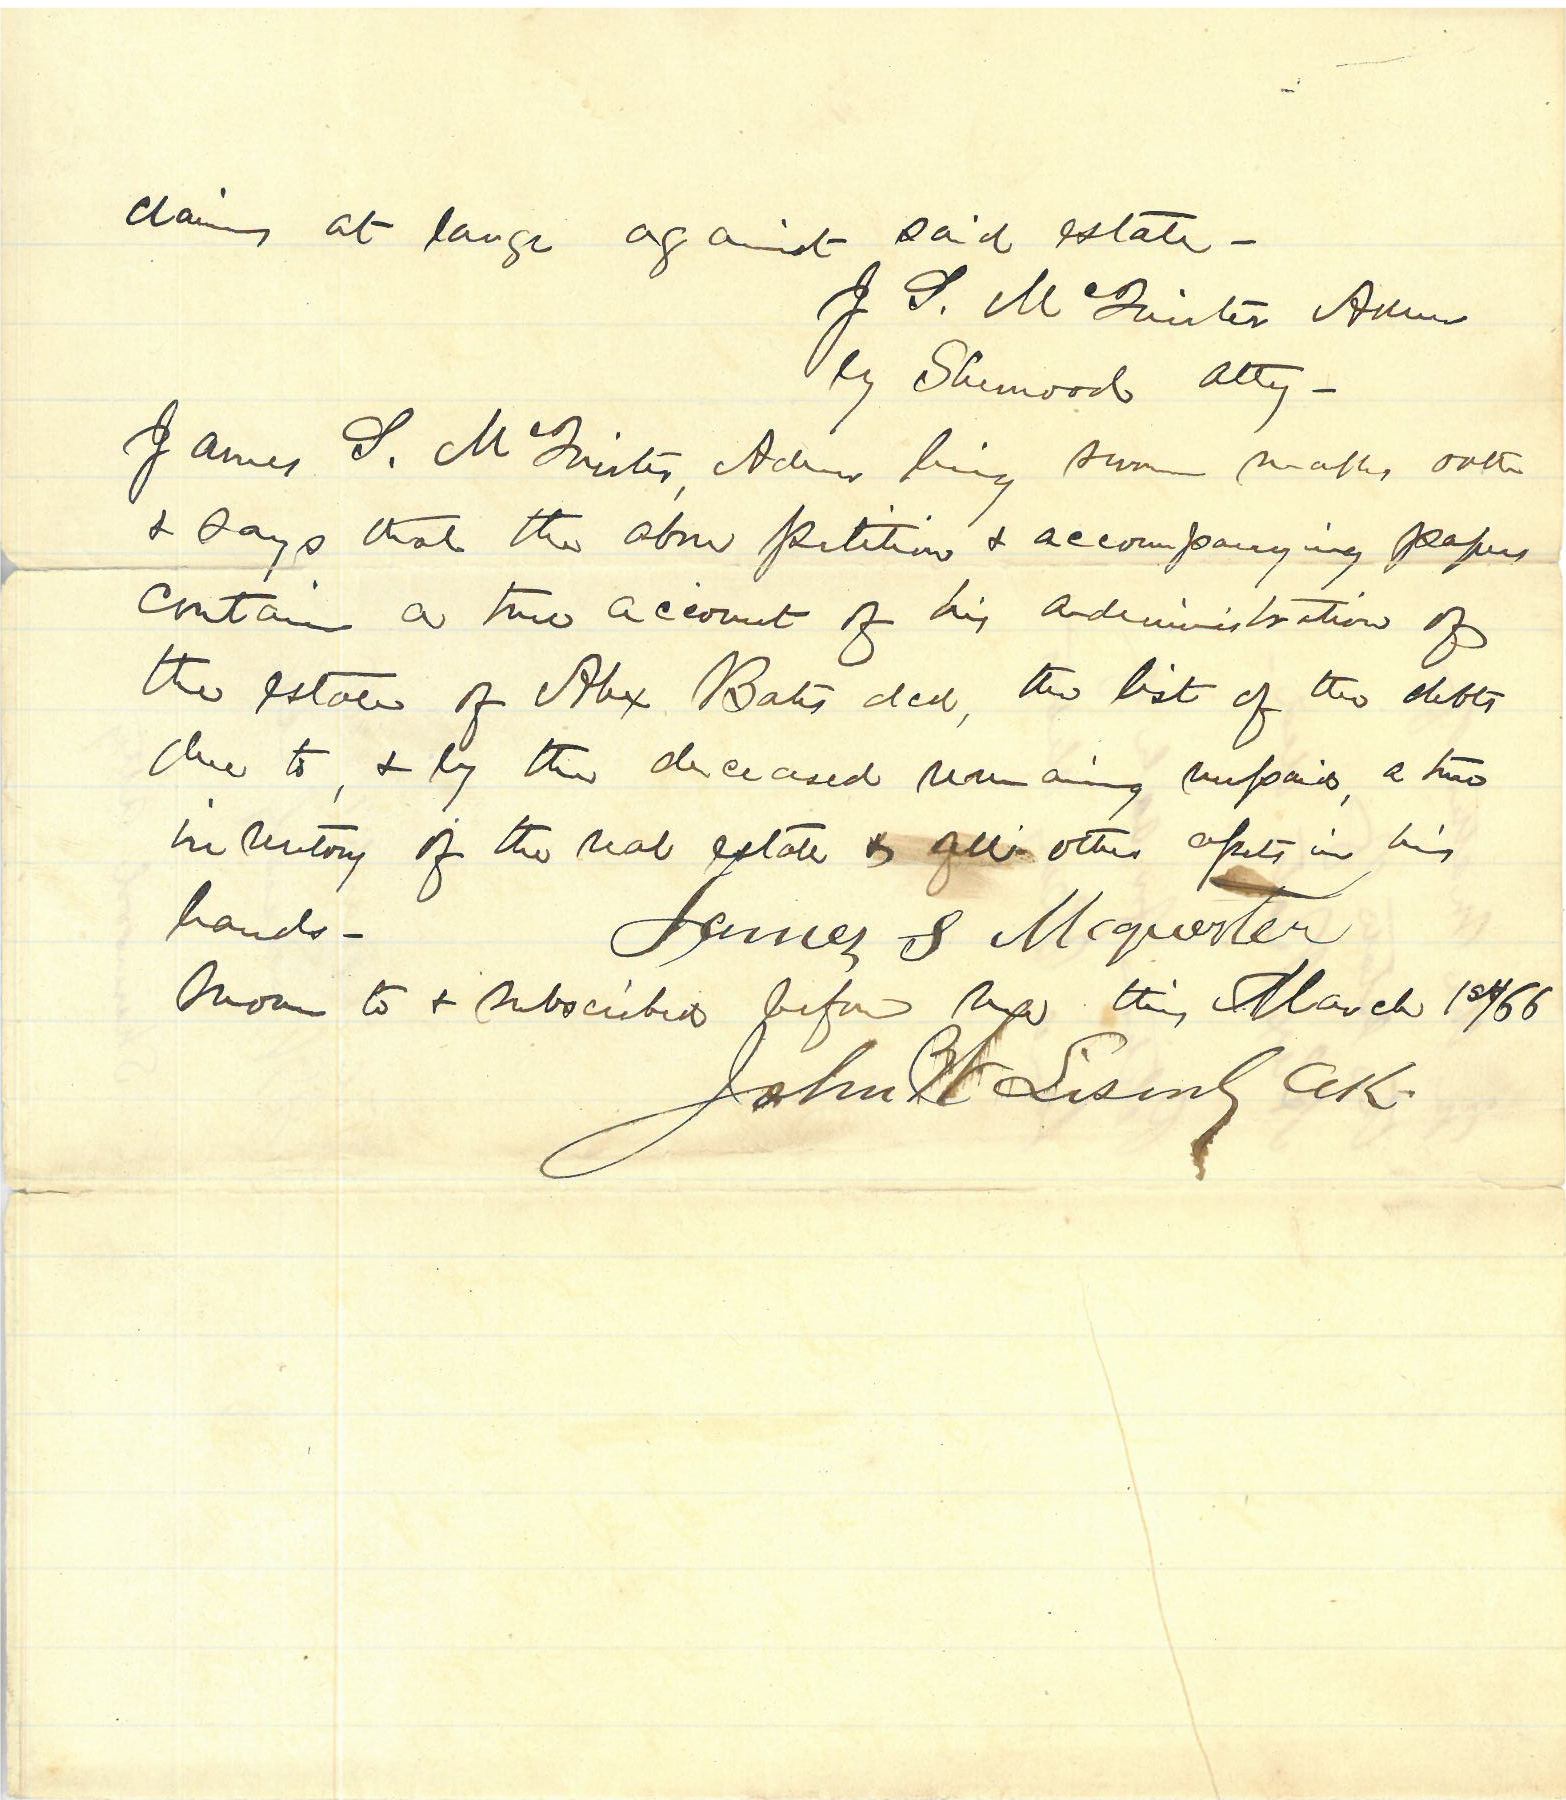 claims at large against said estate –
J S. McQuister Admr
by Sherwood atty –
James S. McQuister, Admr being sworn makes oath
& says that the above petition & accompanying papers
contain a true account of his administration of
the estate of Alex Bates decd, the list of the debts
due to, & by the deceased remaining unpaid, a true
inventory of the real estate & all other assets in his
hands – James S Mcquester
Sworn to & subscribed before me this March 1st/66
John Clk